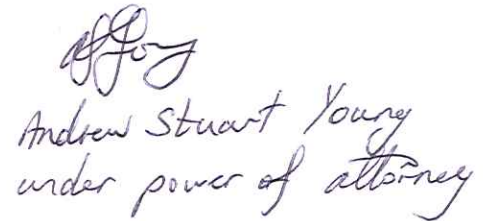 Andrew Stuart Young
under power of attorney